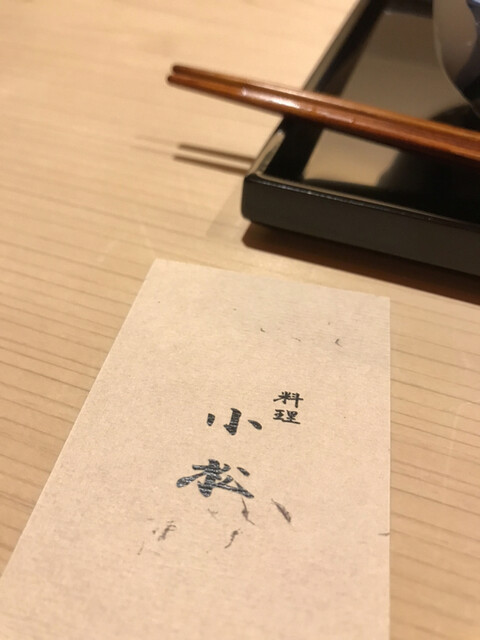 料理
小松